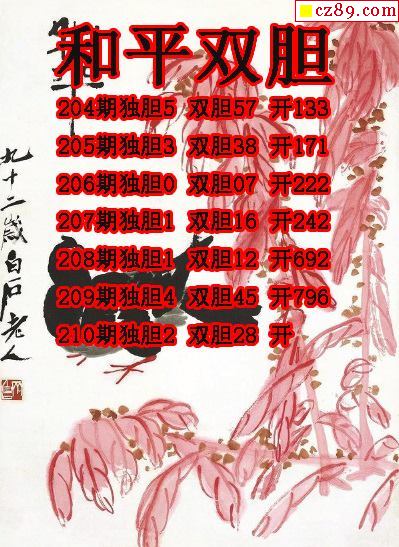 cz89.com
和平双胆
204期独胆5 双胆57 开133
205期独胆3 双胆38 开171
206期独胆0 双胆07 开222
207期独胆1 双胆16 开242
208期独胆1 双胆12 开692
209期独胆4 双胆45 开796
210期独胆2 双胆28 开
九十二岁白石老人